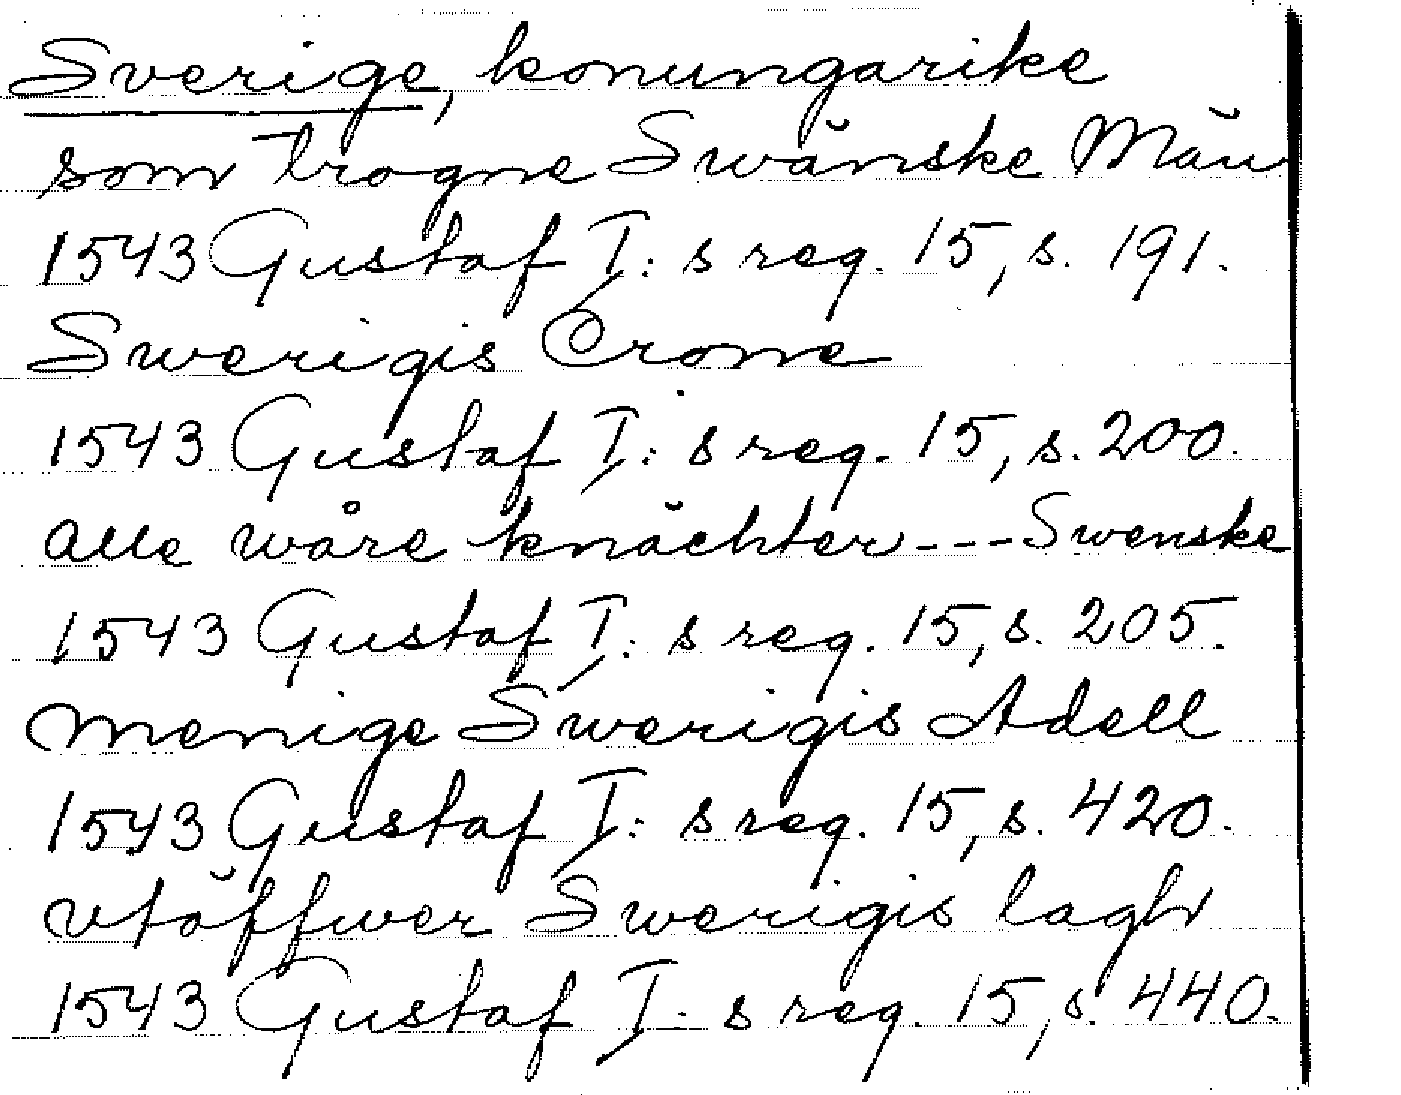 Sverige, konungarike
som trogne Swänske Män
1543 Gustaf I:s reg. 15, s. 191.
Swerigis Crone
1543 Gustaf I:s reg. 15, s. 200.
alle wåre knächter---Swenske
1543 Gustaf I:s reg. 15, s. 205.
menige Swerigis Adell
1543 Gustaf I:s reg. 15, s. 420.
vtöffwer Swerigis lagh
1543 Gustaf I:s reg. 15, s. 440.